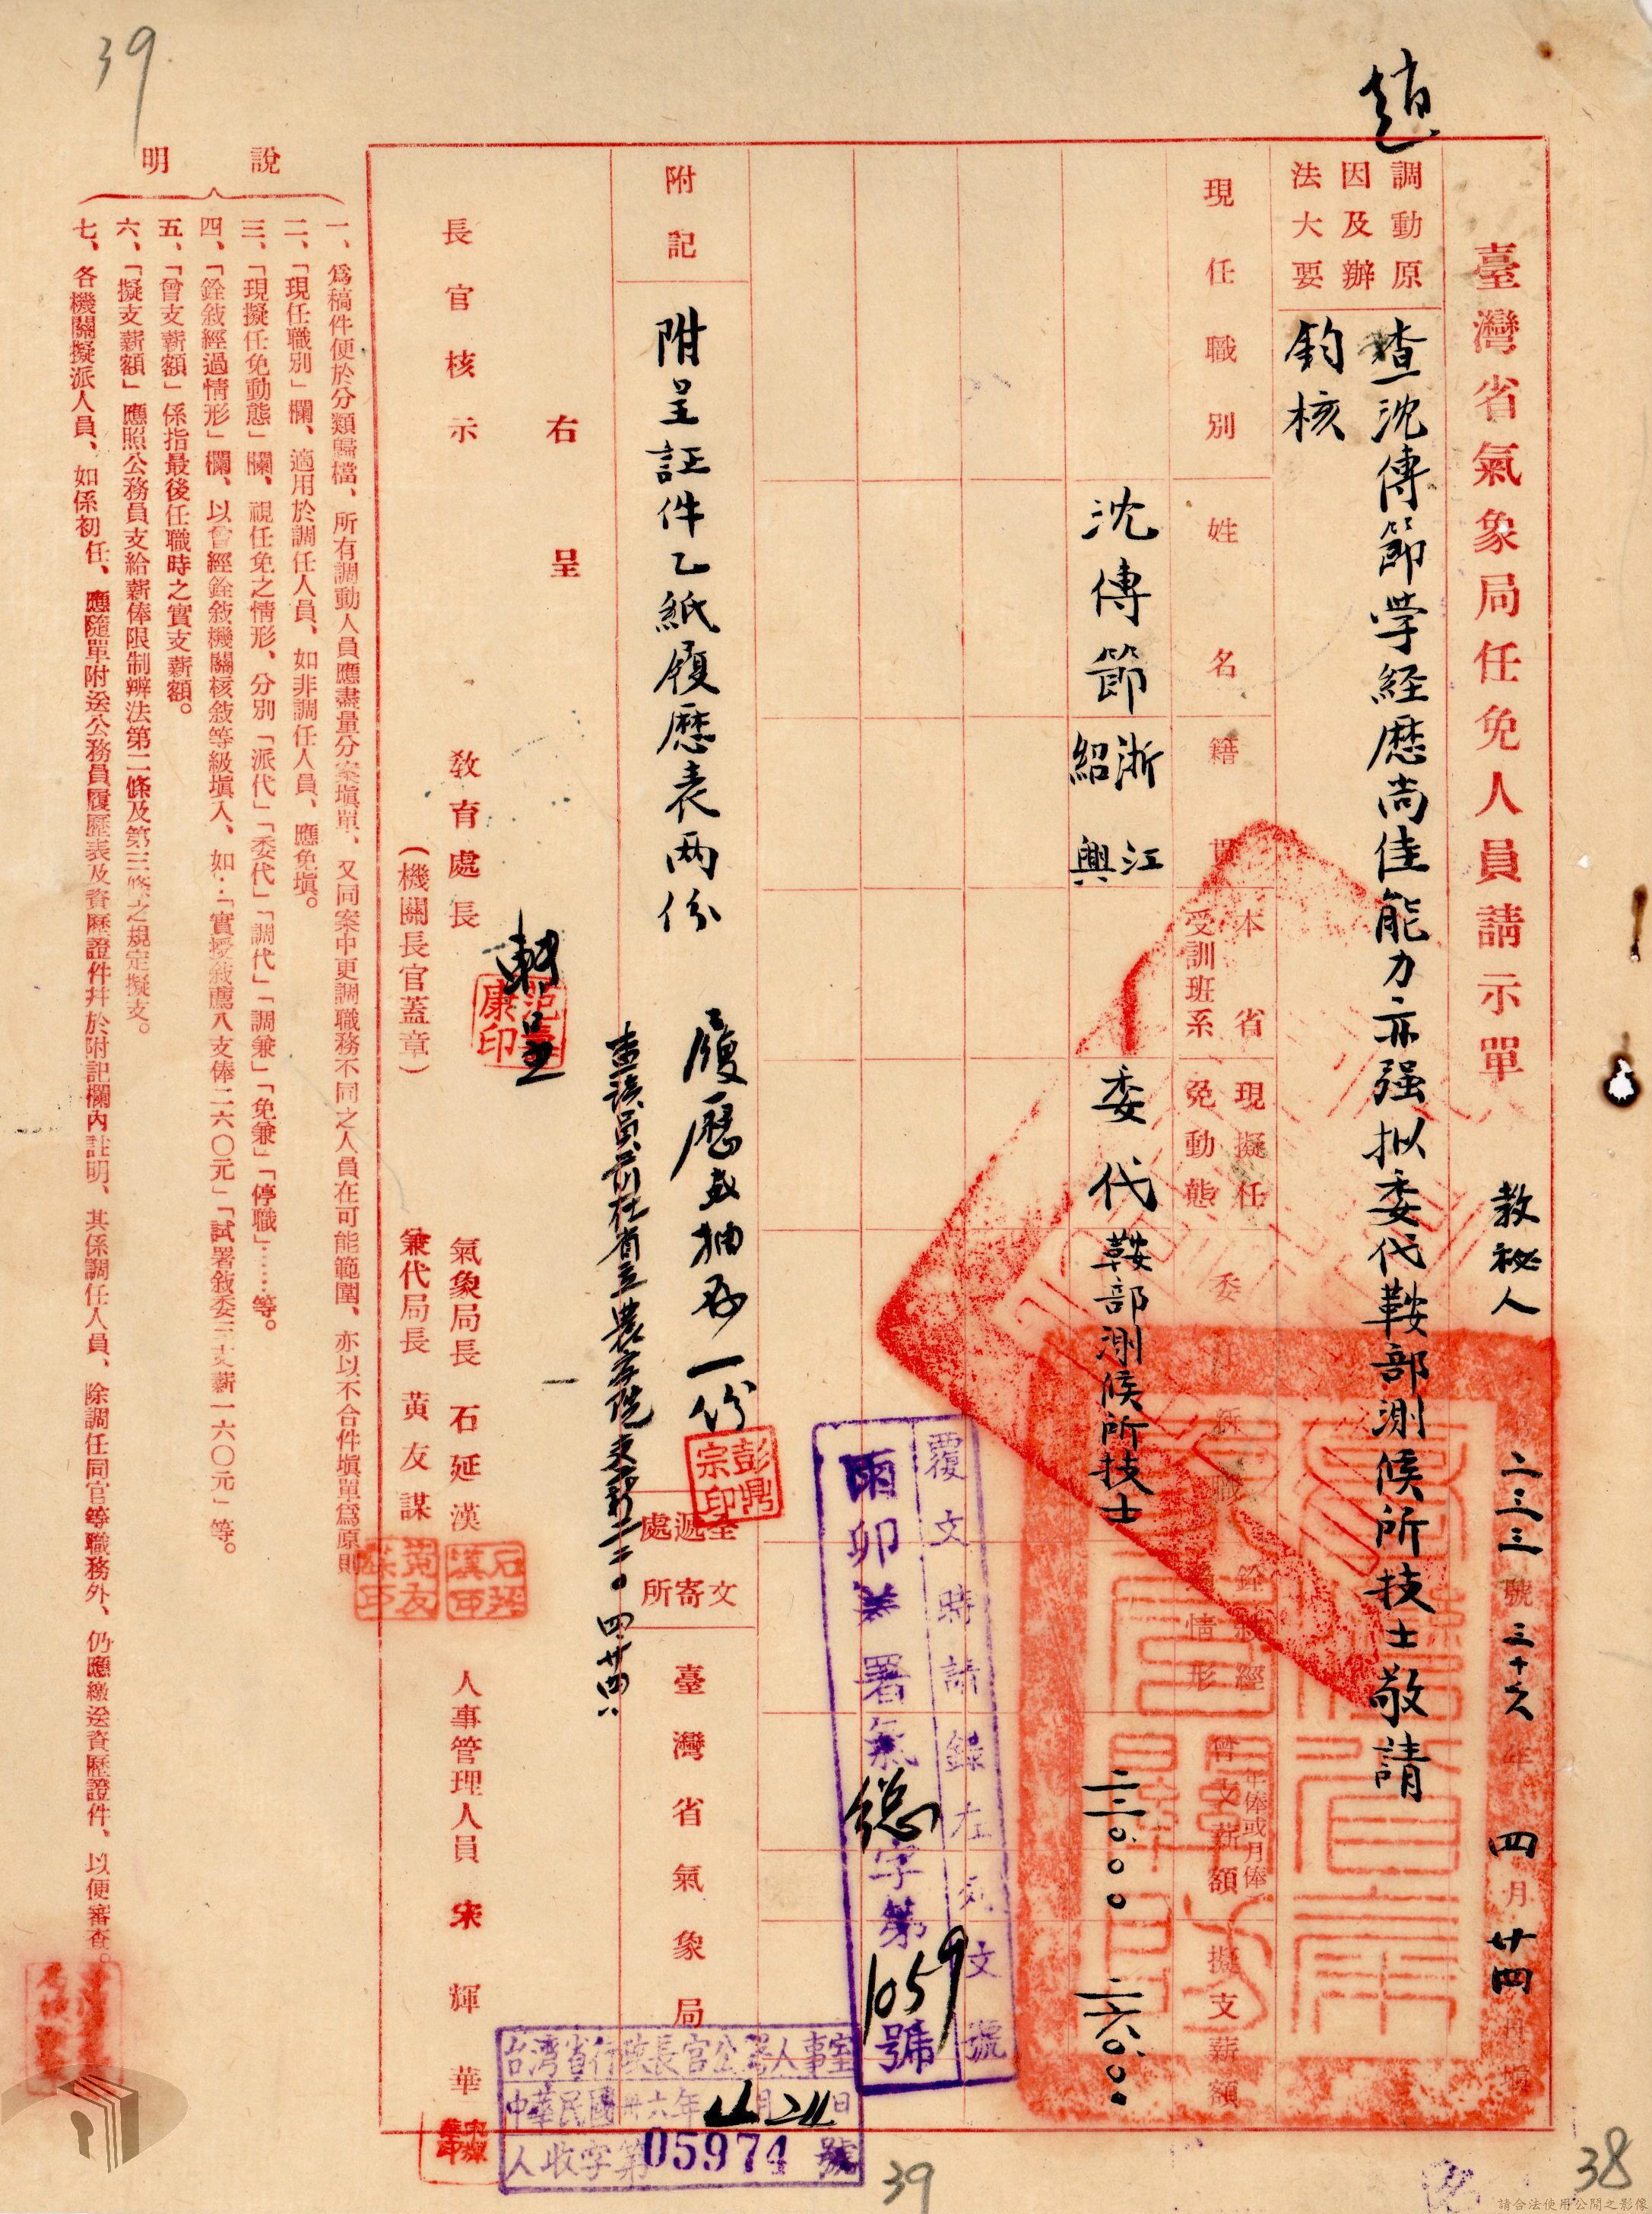 39
趙
臺灣省氣象局任免人員請示單
教秘人
二三三號 三十六年四月廿四日
調動原因及辦法大要
查沈傳節学経歷尚佳能力亦强拟委代鞍部測候所技士敬請
鈞核
現任職別
姓名
籍貫
本省受訓班系
現擬任免動態
委新職
銓敍經情形
曾支薪額
年俸或月俸
擬支薪額
沈傳節
浙江
紹興
委代
鞍部測候所技士
二二〇.〇〇
二六〇.〇〇
覆文時請錄左列文號
雨卯 署氣總字第1059號
附記
附呈証件乙紙履歷表兩份
履歷表抽存一份
彭鼎宗印
查該員前在省立農学院支薪二二〇 四廿四
文寄所
遞處
臺灣省氣象局
右呈
長官核示
教育處長
范壽康印
(機關長官蓋章)
氣象局長 石延漢
兼代局長 黃友謀
人事管理人員 宋輝華
台湾省行政長官公署人事室
中華民國卅六年4月24日
人收字第05974號
說明
一、爲稿件便於分類歸檔、所有調動人員應盡量分案塡單、又同案中更調職務不同之人員在可能範圍、亦以不合件塡單爲原則
二、「現任職別」欄、適用於調任人員、如非調任人員、應免塡。
三、「現擬任免動態」欄、視任免之情形、分別「派代」「委代」「調代」「調兼」「免兼」「停職」……等。
四、「銓敍經過情形」欄、以曾經銓敍機關核敍等級塡入、如:「實授敍薦八支俸二六〇元」「試署敍委三支薪一六〇元」等。
五、「曾支薪額」係指最後任職時之實支薪額。
六、「擬支薪額」應照公務員支給薪俸限制辦法第二條及第三條之規定擬支。
七、各機關擬派人員、如係初任、應隨單附送公務員履歷表及資歷證件幷於附記欄內註明、其係調任人員、除調任同官等職務外、仍應繳送資歷證件、以便審查。
39
38
請合法使用公開之影像